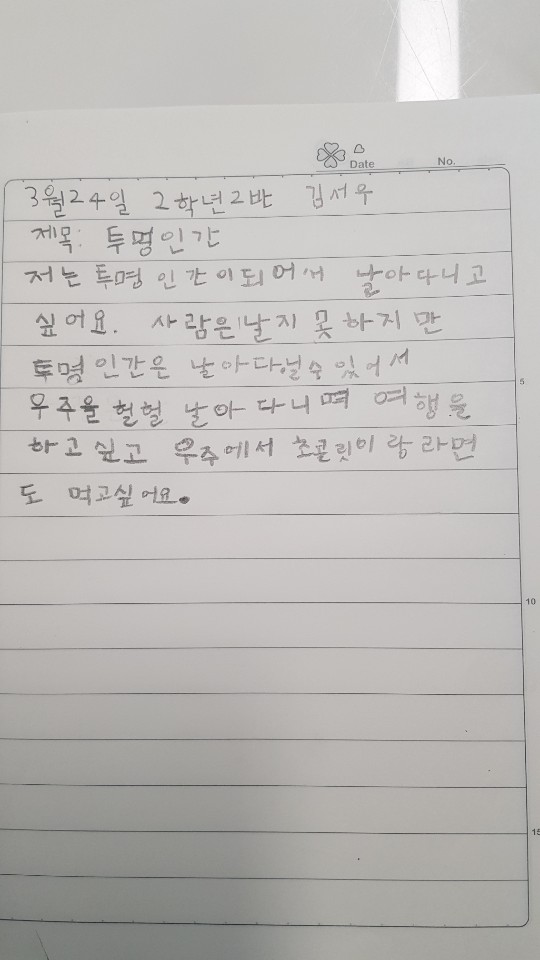 Date No.
3월24일 2학년2반 김서우
제목: 투명인간
저는 투명 인간이되어서 날아다니고
싶어요. 사람은 날지 못하지만
투명인간은 날아다닐수있어서
우주을 훨훨 날아 다니며 여행을
하고싶고 우주에서 초콜릿이랑라면
도 먹고싶어요.
5
10
15